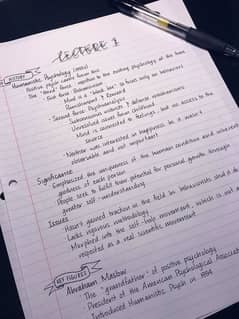 LECTURE 1
HISTORY
Humanistic Psychology (1950s)
Positive psych comes from this
The "third force" - reaction to the existing psychology at the time
- First force: Behaviourism
Mind is a "black box" so focus only on behaviours
Punishment & Reward
- Second force: Psychoanalysis
Subconscious motives & defense mechanisms
Unresolved issues from childhood
Mind is connected to feelings, but no access to the source
- Neither was interested in happiness b/c it wasn't
observable and not important
Significance
- Emphasized the uniqueness of the human condition and inherent
goodness of each person
- People seek to build their potential for personal growth through
greater self-understanding
Issues
- Hasn't gained traction in the field b/c behaviourists said it
Lacks rigorous methodology
- Morphed into the self-help movement, which is not
respected as a real scientific movement
KEY FIGURES
Abraham Maslow
- The "grandfather" of positive psychology
- President of the American Psychological Associat
- Introduced Humanistic Psych in 1954